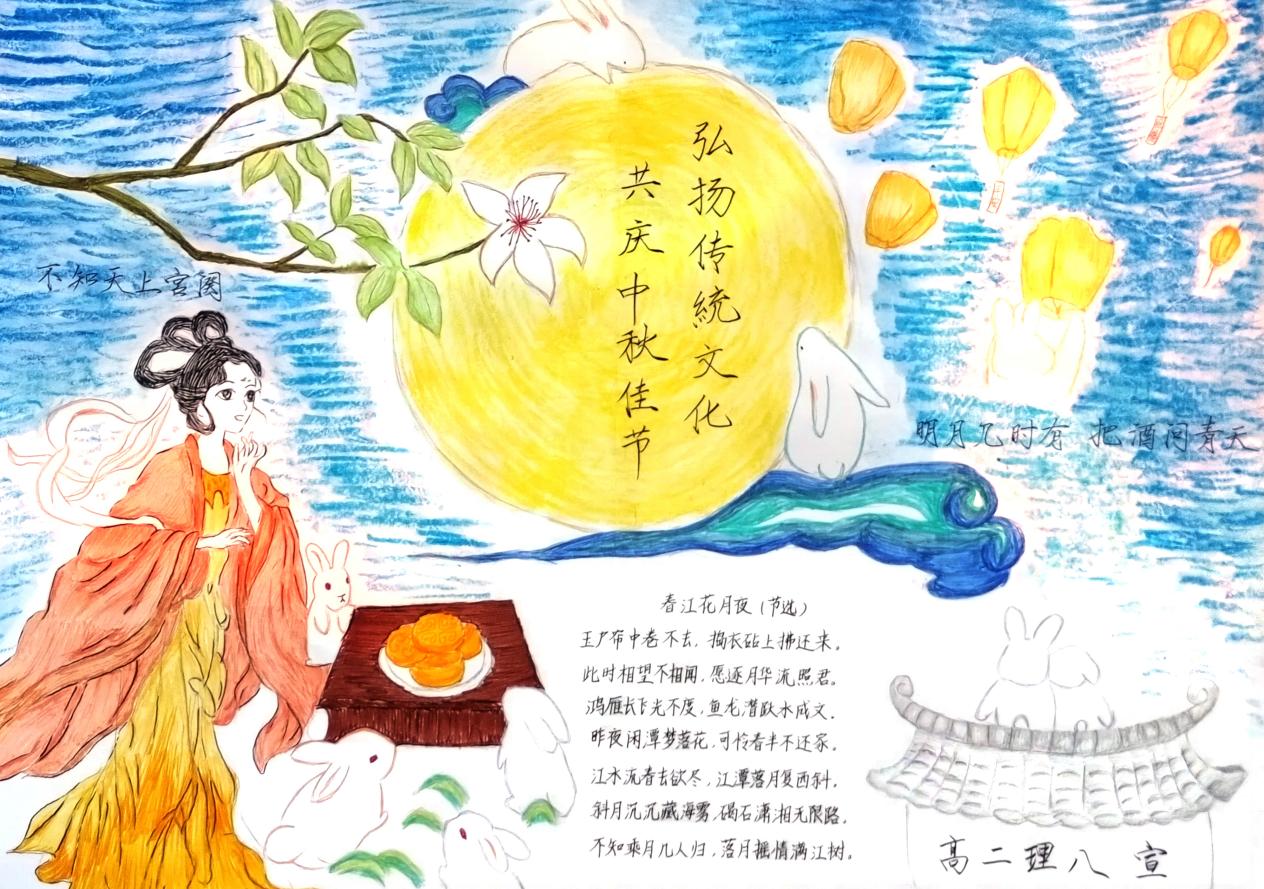 弘扬传統文化
共庆中秋佳节
不知天上宫阙
明月几时有 把酒问青天
春江花月夜（节选）
玉户帘中卷不去，捣衣砧上拂还来。
此时相望不相闻，愿逐月华流照君。
鸿雁长飞光不度，鱼龙潜跃水成文。
昨夜闲潭梦落花，可怜春半不还家。
江水流春去欲尽，江潭落月复西斜。
斜月沉沉藏海雾，碣石潇湘无限路。
不知乘月几人归，落月摇情满江树。
高二理八 宣